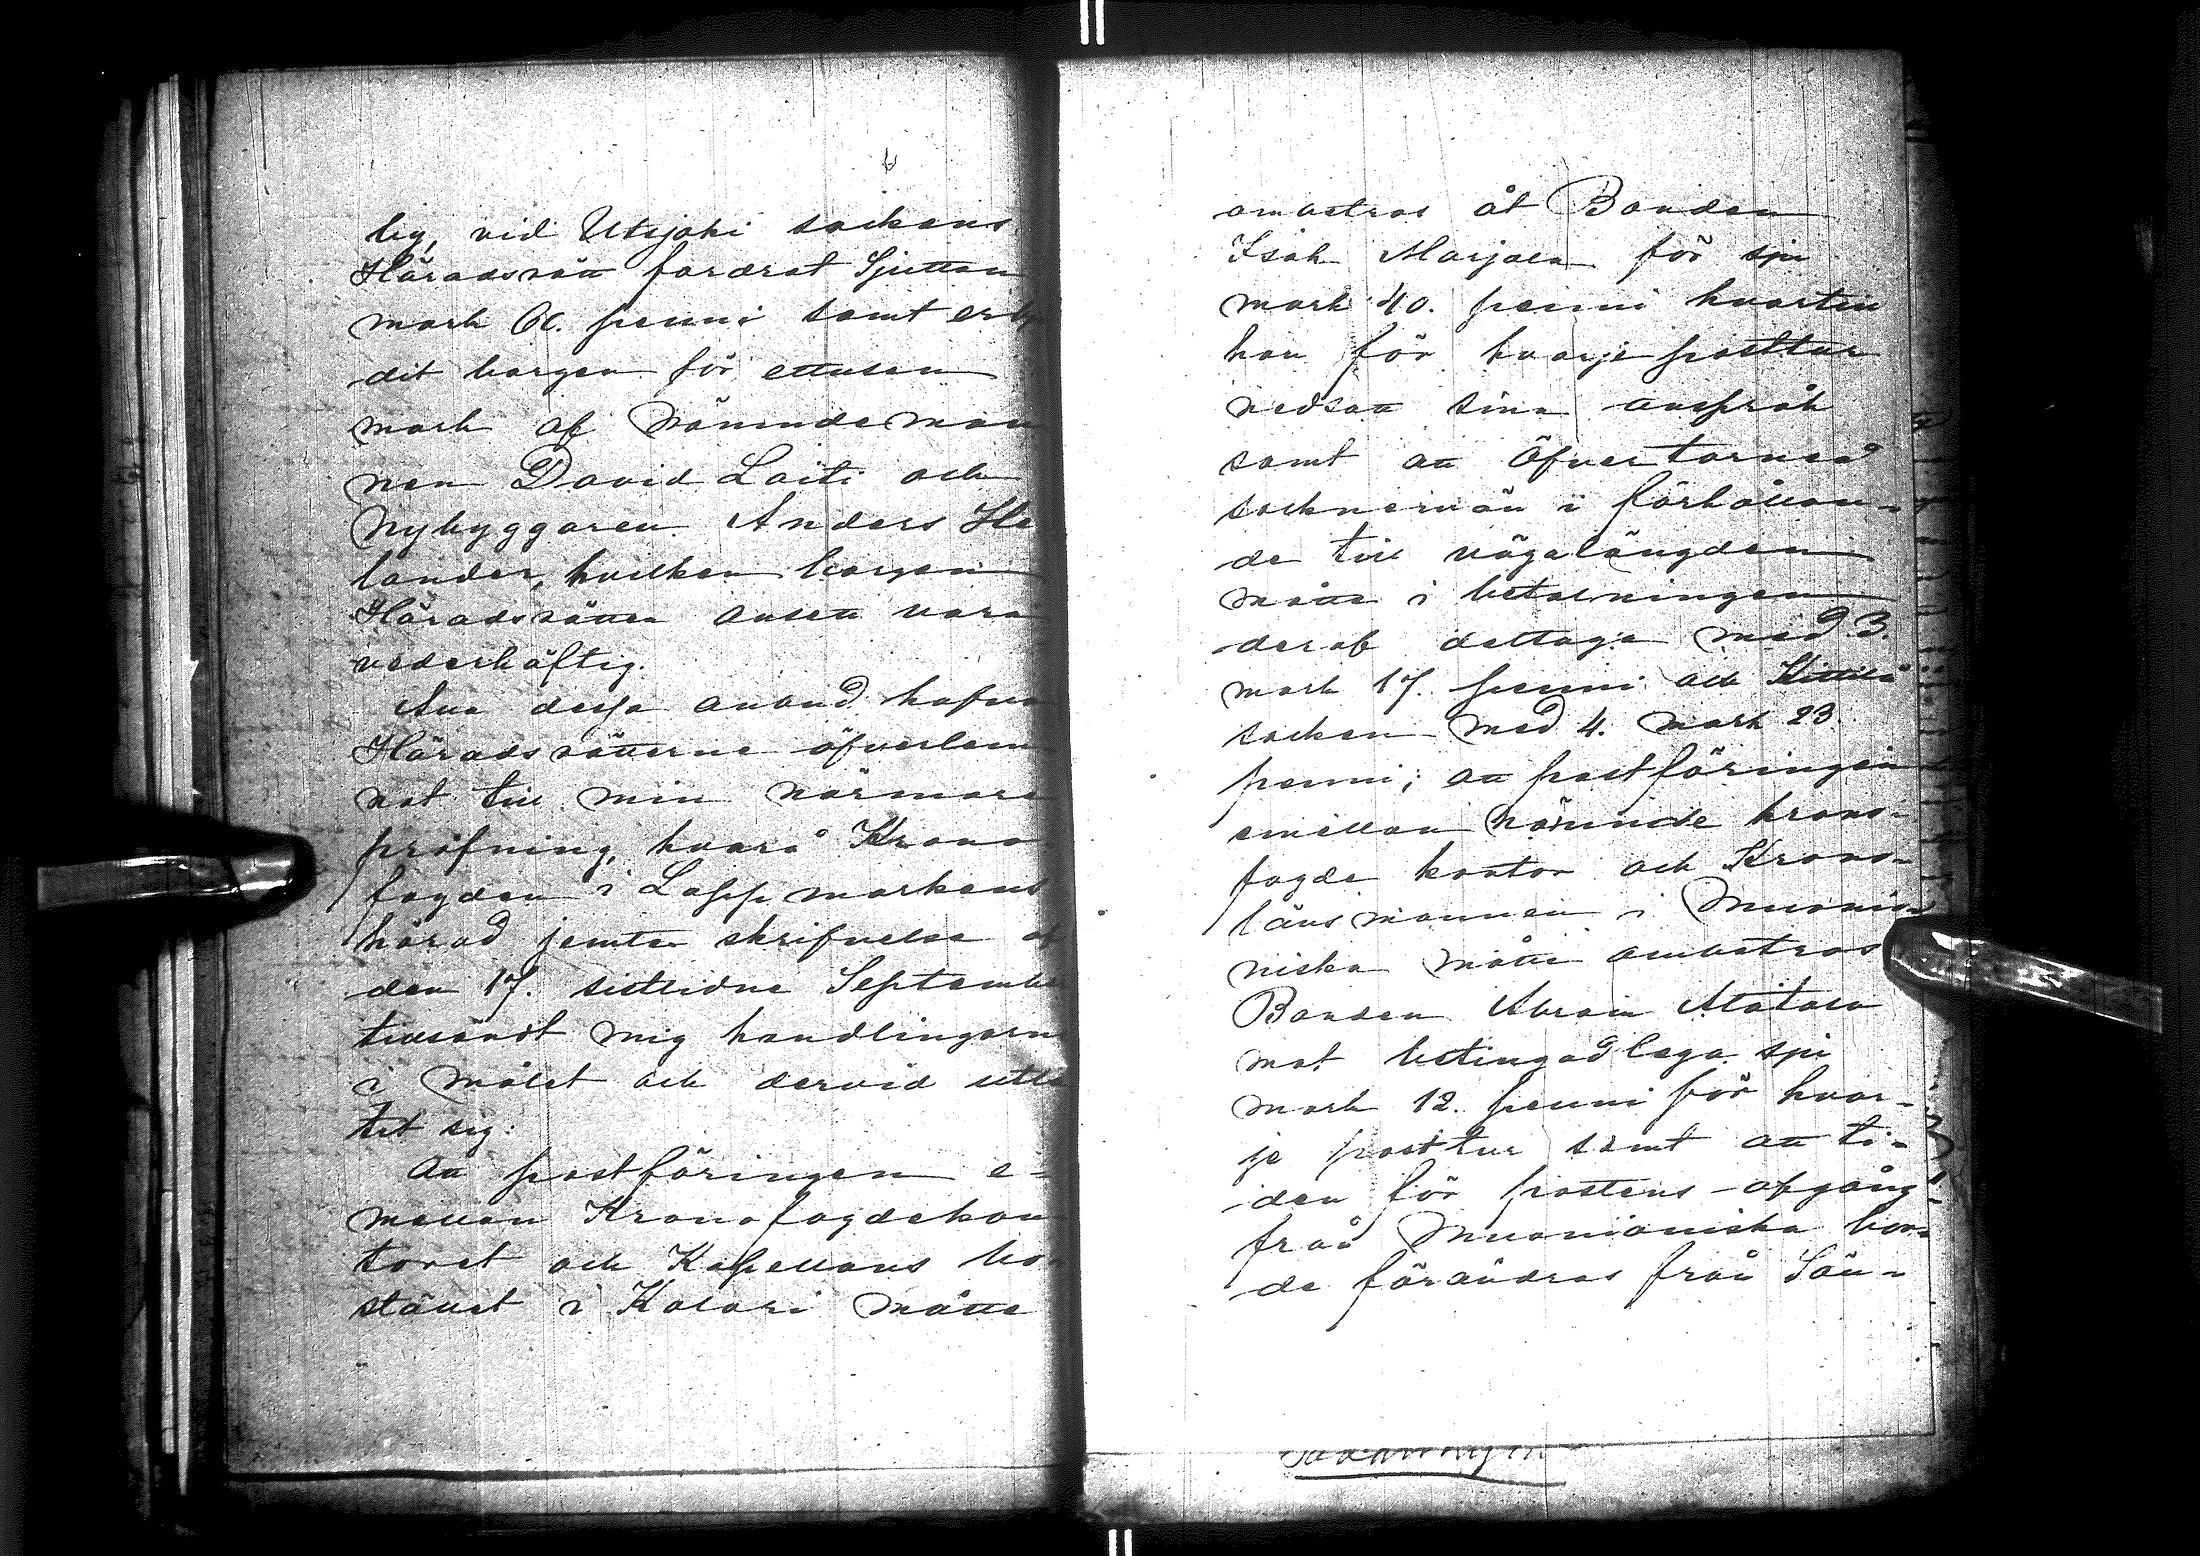 lig, vid Utsjoki sockens
Häradsrätt fordrat Sjutton
mark 60. penni samt erbju
dit borgen för ettusen
mark af Nämndeman
nen David Laiti och
Nybyggaren Anders He
lander, hvilken borgen
Häradsrätten ansett vara
vederhäftig.
Alla dessa anbud hafva
Häradsrätterne öfverlem
nat till min närmare
pröfning, hvarå Krono
fogden i Lappmarkens
härad jemte skrifvelse af
den 17. sistlidne Septembe
tillsändt mig handlingarne
i målet och dervid utlå
tit sig:
att postföringen e-
mellan Kronofogdekon
toret och Kapellans bo-
stället i Kolari måtte
ombetros åt Bonden
Isak Marjala för sju
mark 40. penni hvartill
han för hvarje posttur
nedsatt sina anspråk
samt att Öfvertorneå
sockneman i förhållan-
de till vägalängden
måtte i betalningen
deraf deltaga med 3.
mark 17. penni och Kittilä
socken med 4. mark 23.
penni; att postföringen
emellan nämnde krono-
fogde kontor och Krono-
länsmannen i Muonio-
niska måtte ombetros
Bonden Abram Alatalo
mot betingad lega sju
mark 12. penni för hvar-
je posttur samt att ti-
den för postens afgång
från Muonioniska bor-
de förändras från Sön-